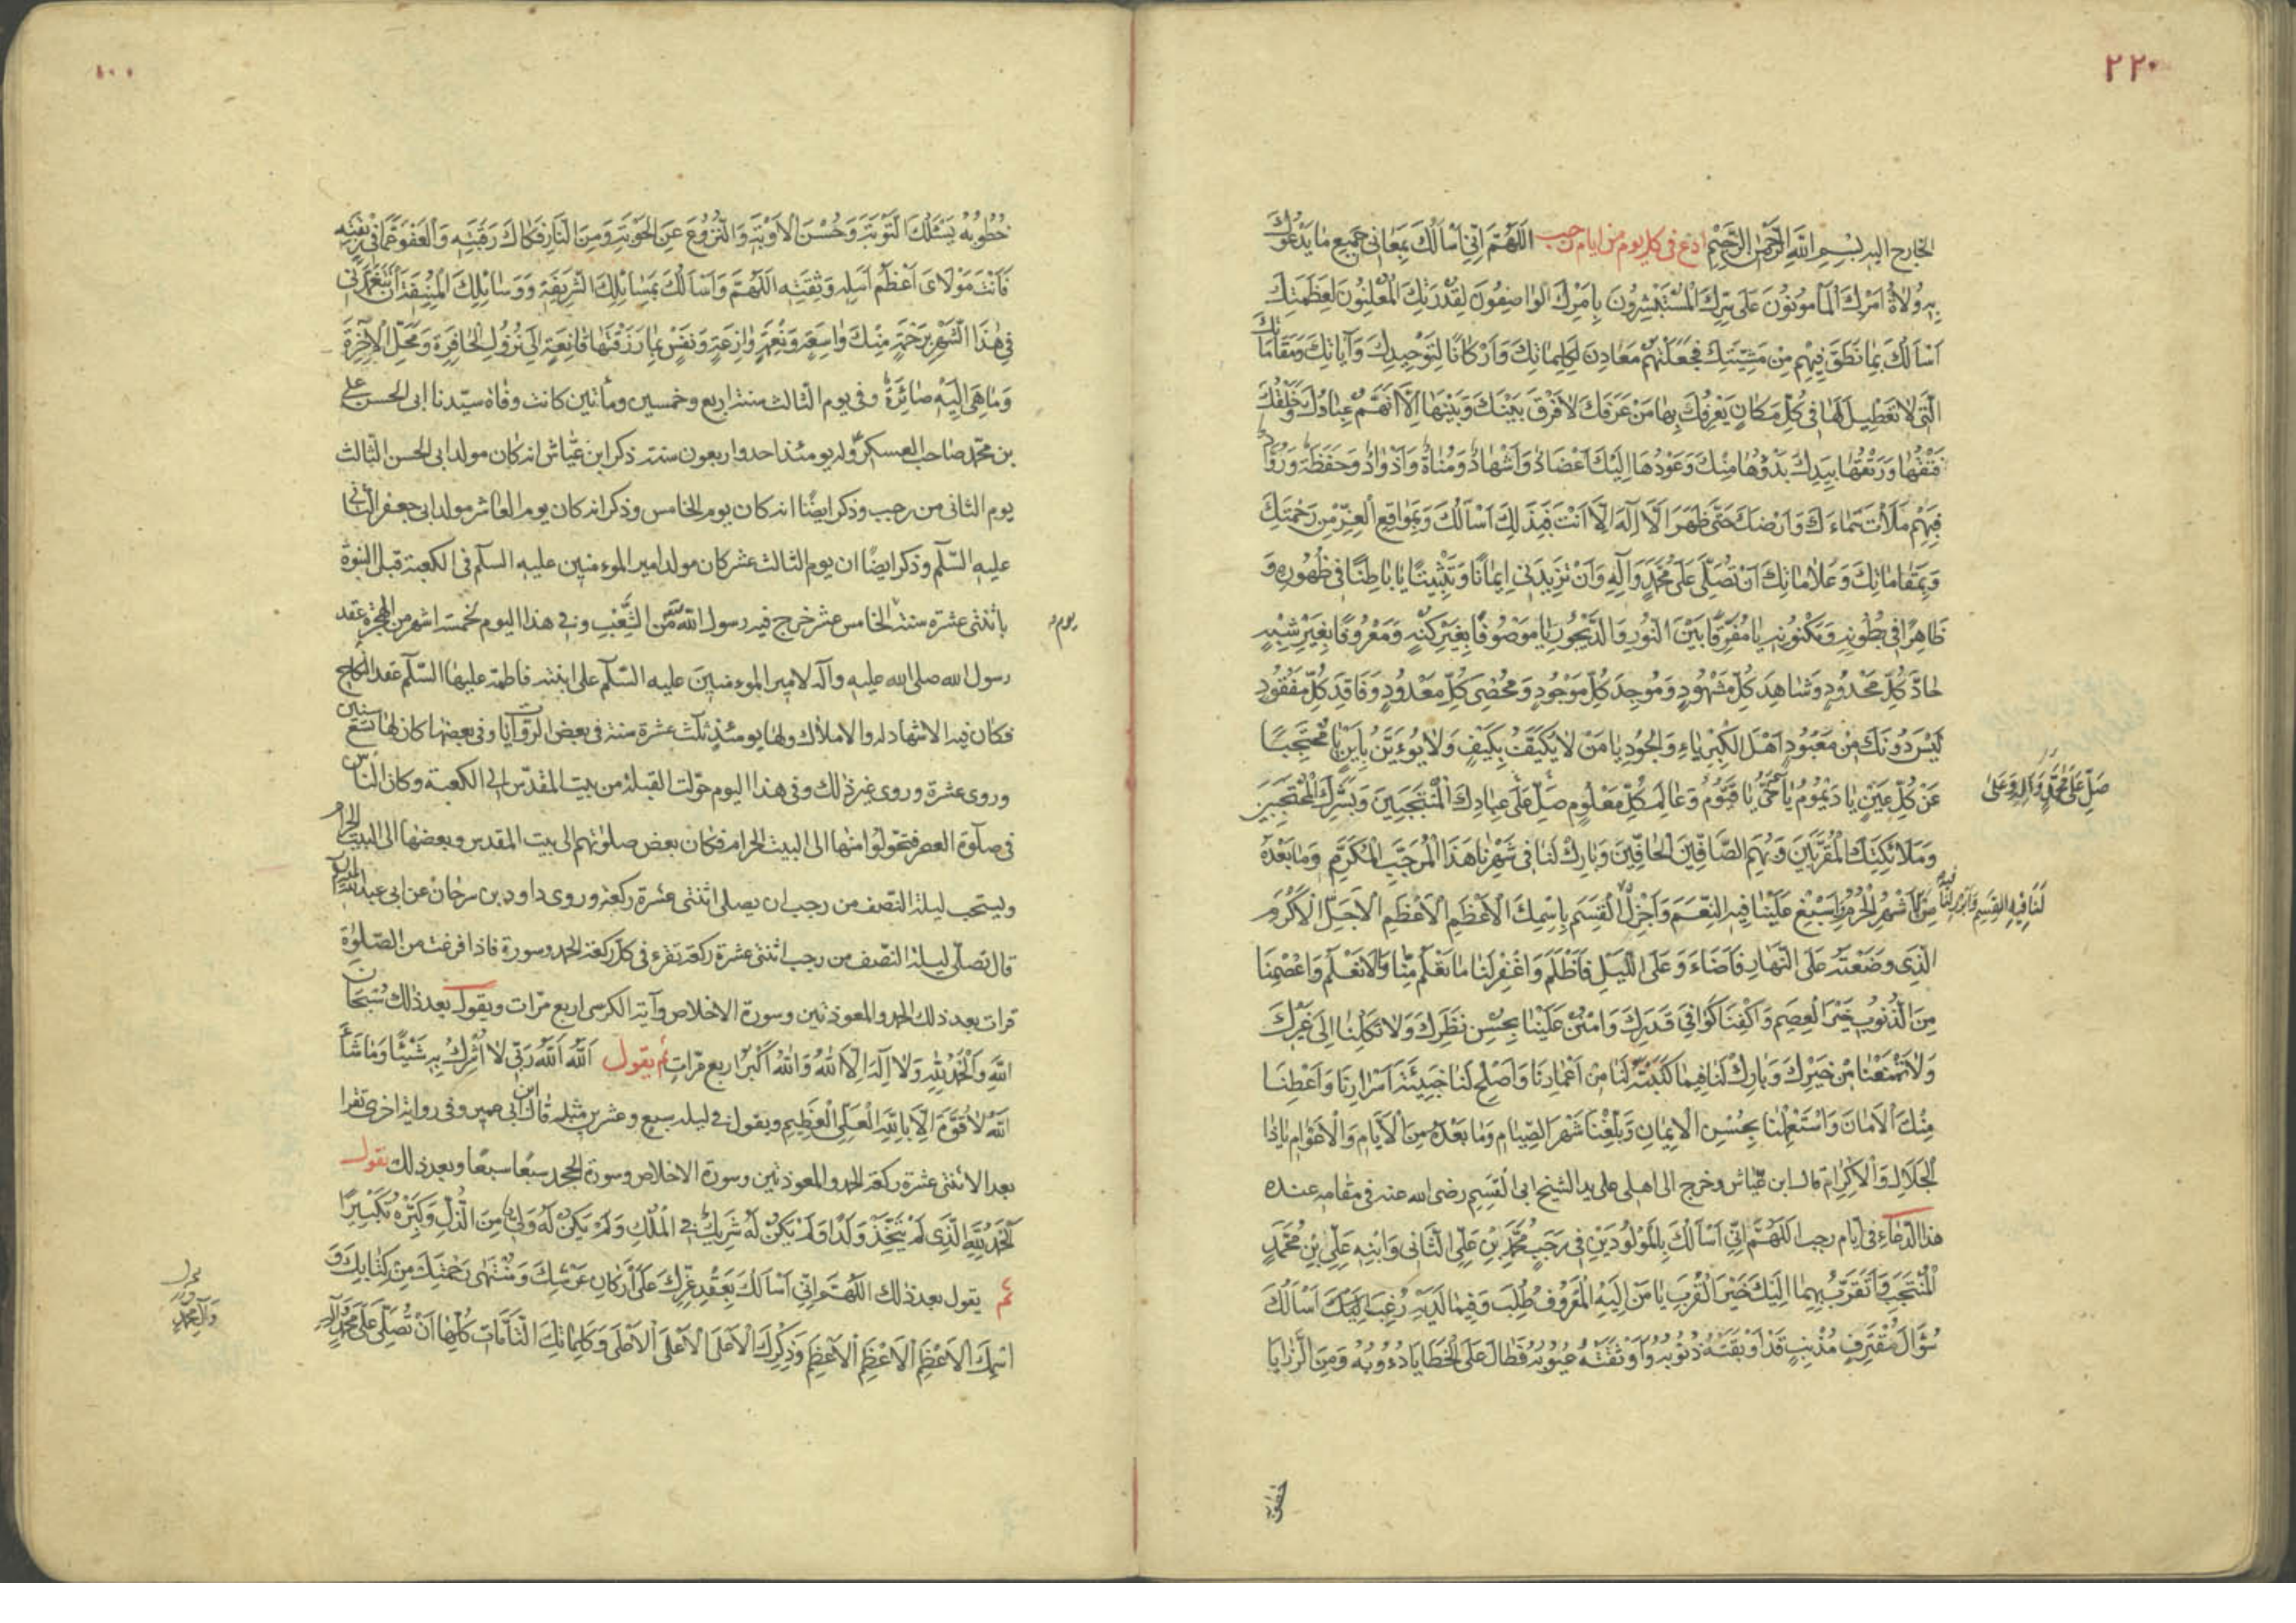 ٢٢٠
الخارج اليه بِسْمِ اللهِ الرَّحْمٰنِ الرَّحِيْمِ ادع فى كل يوم من ايام رجب اَللّٰهُمَّ اِنِّى اَسْاَلُكَ بِمَعَانِى جَمِيْعِ مَا يَدْعُوْكَ
بِهِ وُلَاةُ اَمْرِكَ اَلْمَأمُوْنُوْنَ عَلَى سِرِّكَ الْمُسْتَبْشِرُوْنَ بِاَمْرِكَ الْوَاصِفُوْنَ لِقُدْرَتِكَ الْمُعْلِنُوْنَ لِعَظَمَتِكَ
اَسْاَلُكَ بِمَا نَطَقَ فِيْهِمْ مِنْ مَشِيَّتِكَ فَجَعَلْتَهُمْ مَعَادِنَ لِكَلِمَاتِكَ وَاَرْكَانًا لِتَوْحِيْدِكَ وَآيَاتِكَ وَمَقَامَاتِكَ
الَّتِى لَا تَعْطِيْلَ لَهَا فِى كُلِّ مَكَانٍ يَعْرِفُكَ بِهَا مَنْ عَرَفَكَ لَا فَرْقَ بَيْنَكَ وَبَيْنَهَا اِلَّا اَنَّهُمْ عِبَادُكَ وَخَلْقُكَ
فَتْقُهَا وَرَتْقُهَا بِيَدِكَ بَدْؤُهَا مِنْكَ وَعَوْدُهَا اِلَيْكَ اَعْضَادٌ وَاَشْهَادٌ وَمُنَاةٌ وَاَذْوَادٌ وَحَفَظَةٌ وَرُوَّادٌ
فَبِهِمْ مَلَأْتَ سَمَاءَكَ وَاَرْضَكَ حَتَّى ظَهَرَ اَلَّا اِلٰهَ اِلَّا اَنْتَ فَبِذٰلِكَ اَسْاَلُكَ وَبِمَوَاقِعِ الْعِزِّ مِنْ رَحْمَتِكَ
وَبِمَقَامَاتِكَ وَعَلَامَاتِكَ اَنْ تُصَلِّىَ عَلَى مُحَمَّدٍ وَآلِهِ وَاَنْ تَزِيْدَنِى اِيْمَانًا وَتَثْبِيْتًا يَا بَاطِنًا فِى ظُهُوْرِهِ وَ
ظَاهِرًا فِى بُطُوْنِهِ وَمَكْنُوْنِهِ يَا مُفَرِّقًا بَيْنَ النُّوْرِ وَالدَّيْجُوْرِ يَا مَوْصُوْفًا بِغَيْرِ كُنْهٍ وَمَعْرُوْفًا بِغَيْرِ شِبْهٍ
حَادَّ كُلِّ مَحْدُوْدٍ وَشَاهِدَ كُلِّ مَشْهُوْدٍ وَمُوْجِدَ كُلِّ مَوْجُوْدٍ وَمُحْصِىَ كُلِّ مَعْدُوْدٍ وَفَاقِدَ كُلِّ مَفْقُوْدٍ
لَيْسَ دُوْنَكَ مِنْ مَعْبُوْدٍ اَهْلَ الْكِبْرِيَاءِ وَالْجُوْدِ يَا مَنْ لَا يُكَيَّفُ بِكَيْفٍ وَلَا يُوءَيَّنُ بِاَيْنٍ يَا مُحْتَجِبًا
عَنْ كُلِّ عَيْنٍ يَا دَيْمُوْمُ يَا حَىُّ يَا قَيُّوْمُ وَعَالِمَ كُلِّ مَعْلُوْمٍ صَلِّ عَلَى عِبَادِكَ الْمُنْتَجَبِيْنَ وَبَشَرِكَ الْمُحْتَجِبِيْنَ
صَلِّ عَلَى مُحَمَّدٍ وَآلِهِ وَعَلَى
وَمَلَائِكَتِكَ الْمُقَرَّبِيْنَ وَبُهَمِ الصَّافِّيْنَ الْحَافِّيْنَ وَبَارِكْ لَنَا فِى شَهْرِنَا هَذَا الْمُرَجَّبِ الْمُكَرَّمِ وَمَا بَعْدَهُ
مِنَ الْاَشْهُرِ الْحُرُمِ وَاَسْبِغْ عَلَيْنَا فِيْهِ النِّعَمَ وَاَجْزِلْ الْقِسَمَ بِاسْمِكَ الْاَعْظَمِ الْاَعْظَمِ الْاَجَلِّ الْاَكْرَمِ
لَنَا فِيْهِ الْقِسَمَ وَاَبْرِرْ لَنَا فِيْهِ
الَّذِى وَضَعْتَهُ عَلَى النَّهَارِ فَاَضَاءَ وَعَلَى اللَّيْلِ فَاَظْلَمَ وَاغْفِرْ لَنَا مَا تَعْلَمُ مِنَّا وَمَا لَا نَعْلَمُ وَاعْصِمْنَا
مِنَ الذُّنُوْبِ خَيْرَ الْعِصَمِ وَاكْفِنَا كَوَافِىَ قَدَرِكَ وَامْنُنْ عَلَيْنَا بِحُسْنِ نَظَرِكَ وَلَا تَكِلْنَا اِلَى غَيْرِكَ
وَلَا تَمْنَعْنَا مِنْ خَيْرِكَ وَبَارِكْ لَنَا فِيْمَا كَتَبْتَهُ لَنَا مِنْ اَعْمَارِنَا وَاَصْلِحْ لَنَا خَبِيْئَةَ اَسْرَارِنَا وَاَعْطِنَا
مِنْكَ الْاَمَانَ وَاسْتَعْمِلْنَا بِحُسْنِ الْاِيْمَانِ وَبَلِّغْنَا شَهْرَ الصِّيَامِ وَمَا بَعْدَهُ مِنَ الْاَيَّامِ وَالْاَعْوَامِ يَا ذَا
الْجَلَالِ وَالْاِكْرَامِ قال ابن عيّاش وخرج الى اهلى على يد الشيخ ابى القسم رضى الله عنه فى مقامه عنده
هذا الدعاء فى ايام رجب اَللّٰهُمَّ اِنِّى اَسْاَلُكَ بِالْمَوْلُوْدَيْنِ فِى رَجَبٍ مُحَمَّدِ بْنِ عَلِىٍّ الثَّانِى وَابْنِهِ عَلِىِّ بْنِ مُحَمَّدٍ
الْمُنْتَجَبِ وَاَتَقَرَّبُ بِهِمَا اِلَيْكَ خَيْرَ الْقُرَبِ يَا مَنْ اِلَيْهِ الْمَعْرُوْفُ طُلِبَ وَفِيْمَا لَدَيْهِ رُغِبَ اِلَيْكَ اَسْاَلُكَ
سُؤَالَ مُقْتَرِفٍ مُذْنِبٍ قَدْ اَوْبَقَتْهُ ذُنُوْبُهُ وَاَوْثَقَتْهُ عُيُوْبُهُ فَطَالَ عَلَى الْخَطَايَا دُءُوْبُهُ وَمِنَ الرَّزَايَا
خُطُوْبُهُ يَسْئَلُكَ التَّوْبَةَ وَحُسْنَ الْاَوْبَةِ وَالنُّزُوْعَ عَنِ الْحَوْبَةِ وَمِنَ النَّارِ فَكَاكَ رَقَبَتِهِ وَالْعَفْوَ عَمَّا فِى رِبْقَتِهِ
فَاَنْتَ مَوْلَاىَ اَعْظَمُ اَمَلِهِ وَثِقَتِهِ اَللّٰهُمَّ وَاَسْاَلُكَ بِمَسَائِلِكَ الشَّرِيْفَةِ وَوَسَائِلِكَ الْمُنِيْفَةِ اَنْ تَتَغَمَّدَنِى
فِى هٰذَا الشَّهْرِ بِرَحْمَةٍ مِنْكَ وَاسِعَةٍ وَنِعْمَةٍ وَازِعَةٍ وَنَفْسٍ بِمَا رَزَقْتَهَا قَانِعَةٍ اِلَى نُزُوْلِ الْحَافِرَةِ وَمَحَلِّ الْاٰخِرَةِ
وَمَا هِىَ اِلَيْهِ صَائِرَةٌ وفى يوم الثالث سنة اربع وخمسين ومأتين كانت وفاة سيّدنا ابى الحسن على
بن محمّد صاحب العسكر وله يومئذ احد واربعون سنة ذكر ابن عيّاش انه كان مولد ابى الحسن الثالث
يوم الثانى من رجب وذكر ايضًا انه كان يوم الخامس وذكر انه كان يوم العاشر مولد ابى جعفر الثانى
عليه السّلم وذكر ايضًا ان يوم الثالث عشر كان مولد امير الموءمنين عليه السلم فى الكعبة قبل النبوة
باثنتى عشرة سنة الخامس عشر خرج فيه رسول الله من الشِّعْبِ وفى هذا اليوم لخمسة اشهر من الهجرة عقد
يوم
رسول الله صلى الله عليه وآله لامير الموءمنين عليه السّلم على ابنته فاطمة عليها السّلم عقد النكاح
فكان فيه الاشهاد له والاملاك ولها يومئذٍ ثلث عشرة سنة فى بعض الروايات وفى بعضها كان لها تسع سنين
وروى عشرة وروى غير ذلك وفى هذا اليوم حوّلت القبلة من بيت المقدّس الى الكعبة وكان الناس
فى صلوة العصر فتحوّلوا منها الى البيت الحرام فكان بعض صلوتهم الى بيت المقدس وبعضها الى البيت الحرام
ويستحب ليلة النّصف من رجب ان يصلى اثنتى عشرة ركعة وروى داود بن سرحان عن ابى عبد الله
قال تصلّى ليلة النّصف من رجب اثنتى عشرة ركعة تقرء فى كل ركعة الحمد وسورة فاذا فرغت من الصّلوٰة
قرات بعد ذلك الحمد والمعوذتين وسورة الاخلاص وآية الكرسى اربع مرّات ويقول بعد ذلك سُبْحَانَ
اللهِ وَالْحَمْدُ لِلّٰهِ وَلَا اِلٰهَ اِلَّا اللهُ وَاللهُ اَكْبَرُ اربع مرّات ثم يقول اَللهُ اَللهُ رَبِّى لَا اُشْرِكُ بِهِ شَيْئًا وَمَا شَاءَ
اللهُ لَا قُوَّةَ اِلَّا بِاللهِ الْعَلِىِّ الْعَظِيْمِ ويقول فى ليلة سبع وعشرين مثله قال ابن ابى عمير وفى رواية اخرى تقرا
بعد الاثنتى عشرة ركعة الحمد والمعوذتين وسورة الاخلاص وسورة الجحد سبعًا سبعًا وبعد ذلك يقول
اَلْحَمْدُ لِلّٰهِ الَّذِى لَمْ يَتَّخِذْ وَلَدًا وَلَمْ يَكُنْ لَهُ شَرِيْكٌ فِى الْمُلْكِ وَلَمْ يَكُنْ لَهُ وَلِىٌّ مِنَ الذُّلِّ وَكَبِّرْهُ تَكْبِيْرًا
ثم يقول بعد ذلك اَللّٰهُمَّ اِنِّى اَسْاَلُكَ بِعَقْدِ عِزِّكَ عَلَى اَرْكَانِ عَرْشِكَ وَمُنْتَهَى رَحْمَتِكَ مِنْ كِتَابِكَ وَ
اسْمِكَ الْاَعْظَمِ الْاَعْظَمِ الْاَعْظَمِ وَذِكْرِكَ الْاَعْلَى الْاَعْلَى الْاَعْلَى وَكَلِمَاتِكَ التَّامَّاتِ كُلِّهَا اَنْ تُصَلِّىَ عَلَى مُحَمَّدٍ وَآلِهِ
وَآلِ مُحَمَّدٍ